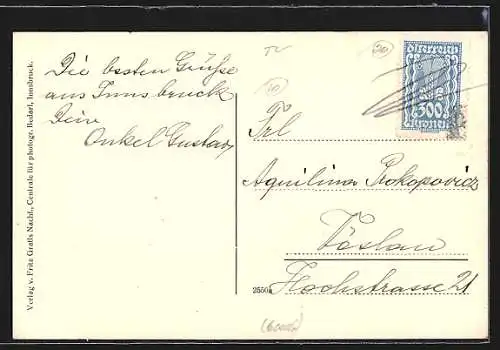 Die besten Grüße
aus Innsbruck
Dein
Onkel Gustav
Österreich
300
Kronen
Frl
Aquilina Prokopovicz
Vöslau
Hochstrasse 21
2550a
Verlag v. Fritz Gratls Nachf., Centrale für photogr. Bedarf, Innsbruck.
20
10